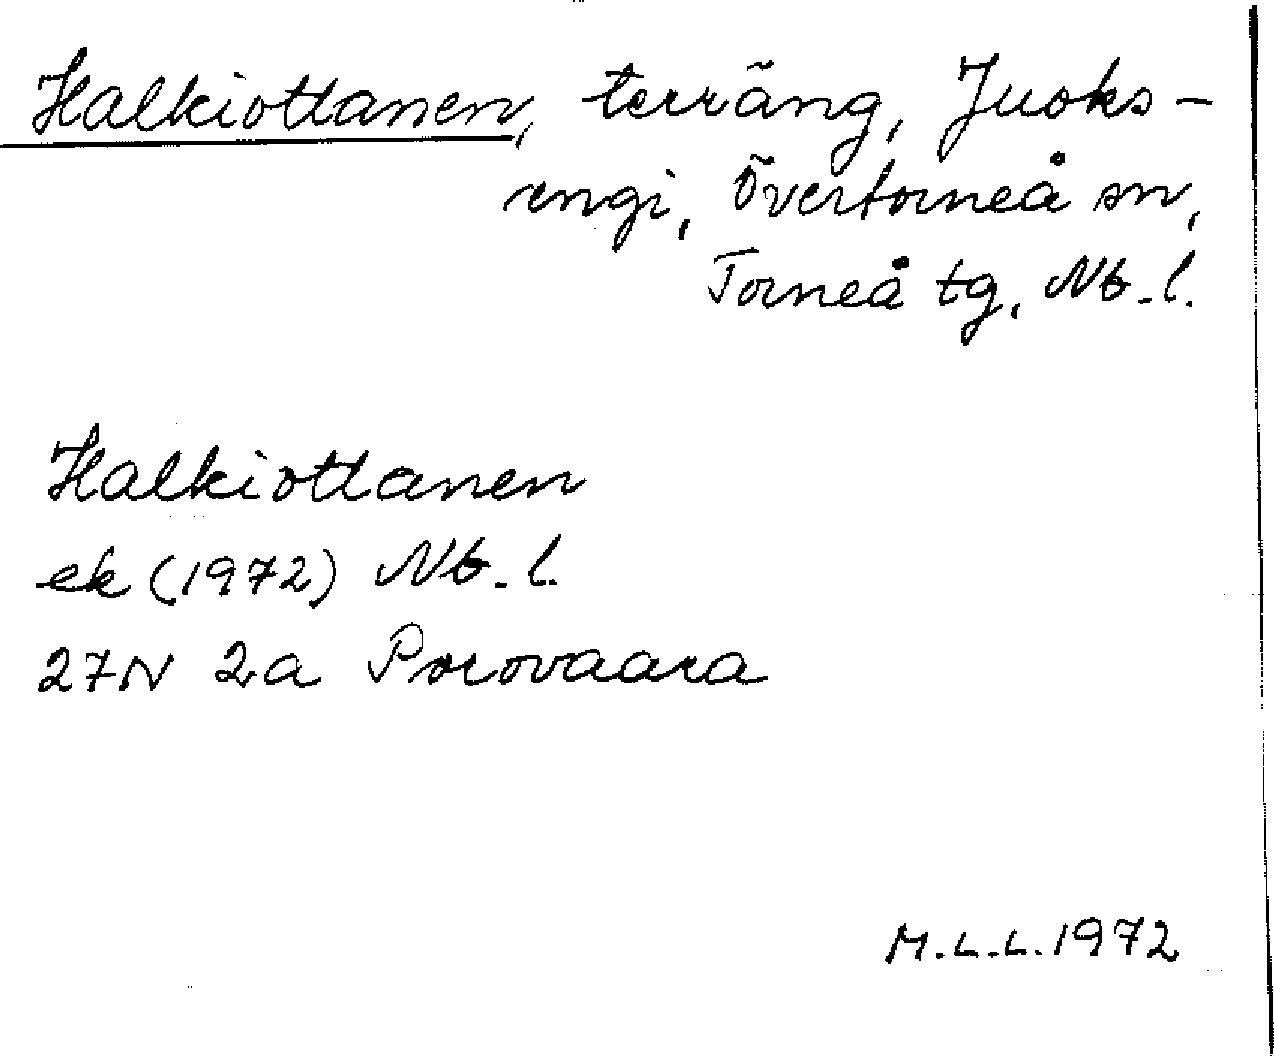 Halkiottanen, terräng, Juoks-
engi, Övertorneå sn,
Torneå tg, Nb.l.
Halkiottanen
ek (1972) Nb.l.
27N 2a Porovaara
M.L.L. 1972